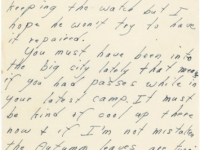 keeping the watch but I
hope he won't try to have
it repaired.
You must have been into
the big city lately that
if you had passes while in
your latest camp. It must
be kind of cool up there
now & if I'm not mistaken
the Autumn leaves are